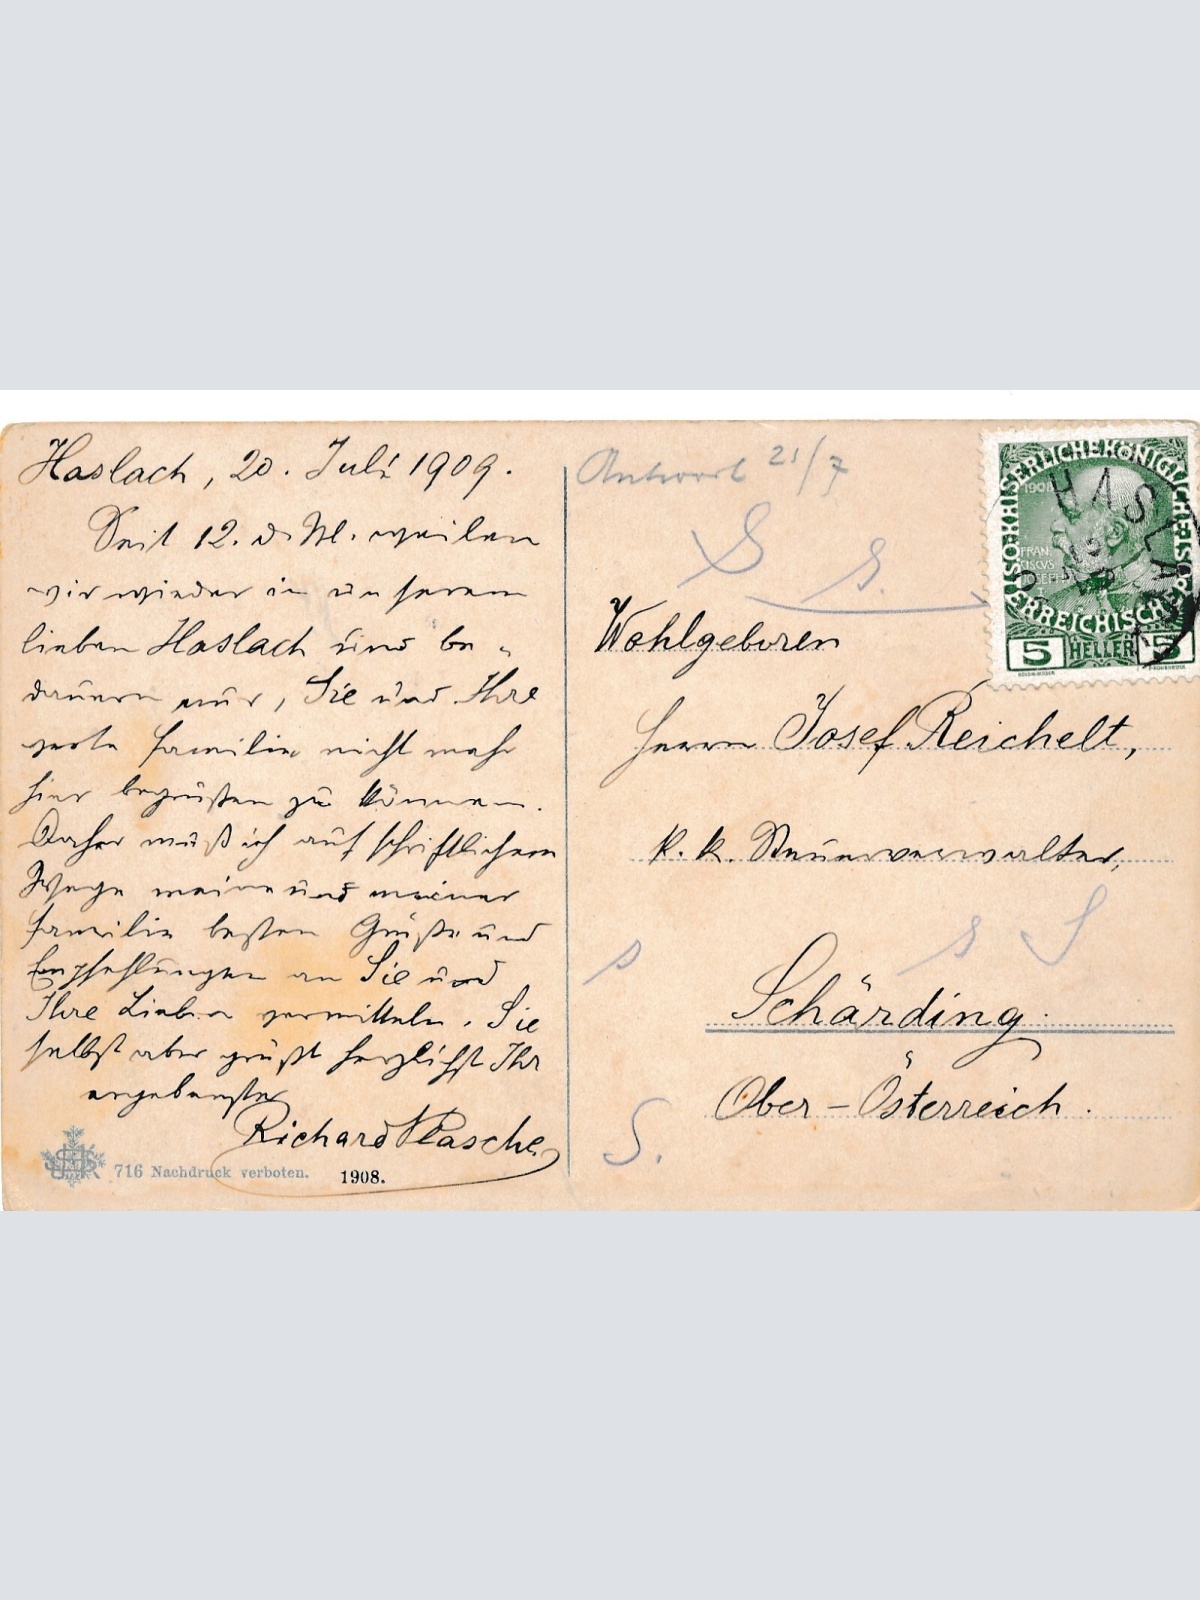 Haslach, 20. Juli 1909.
Seit 12. d. M. weilen
wir wieder in unserem
lieben Haslach und be-
dauern nur, Sie und Ihre
werte Familie nicht mehr
hier begrüßen zu können.
Daher muß ich auf schriftlichem
Wege meine und meiner
Familie besten Grüße und
Empfehlungen an Sie und
Ihre Lieben vermitteln. Sie
selbst aber grüßt herzlichst Ihr
ergebenster
Richard Plasche
716 Nachdruck verboten. 1908.
Antwort 21/7
S S.
Wohlgeboren
Herrn Josef Reichelt,
k. k. Steuerverwalter,
s s S
Schärding
Ober-Österreich.
S.
KAISERLICHE KÖNIGLICHE ÖSTERREICHISCHE
1908
FRAN
CISCVS
JOSEPH
5 HELLER 5
HASLACH